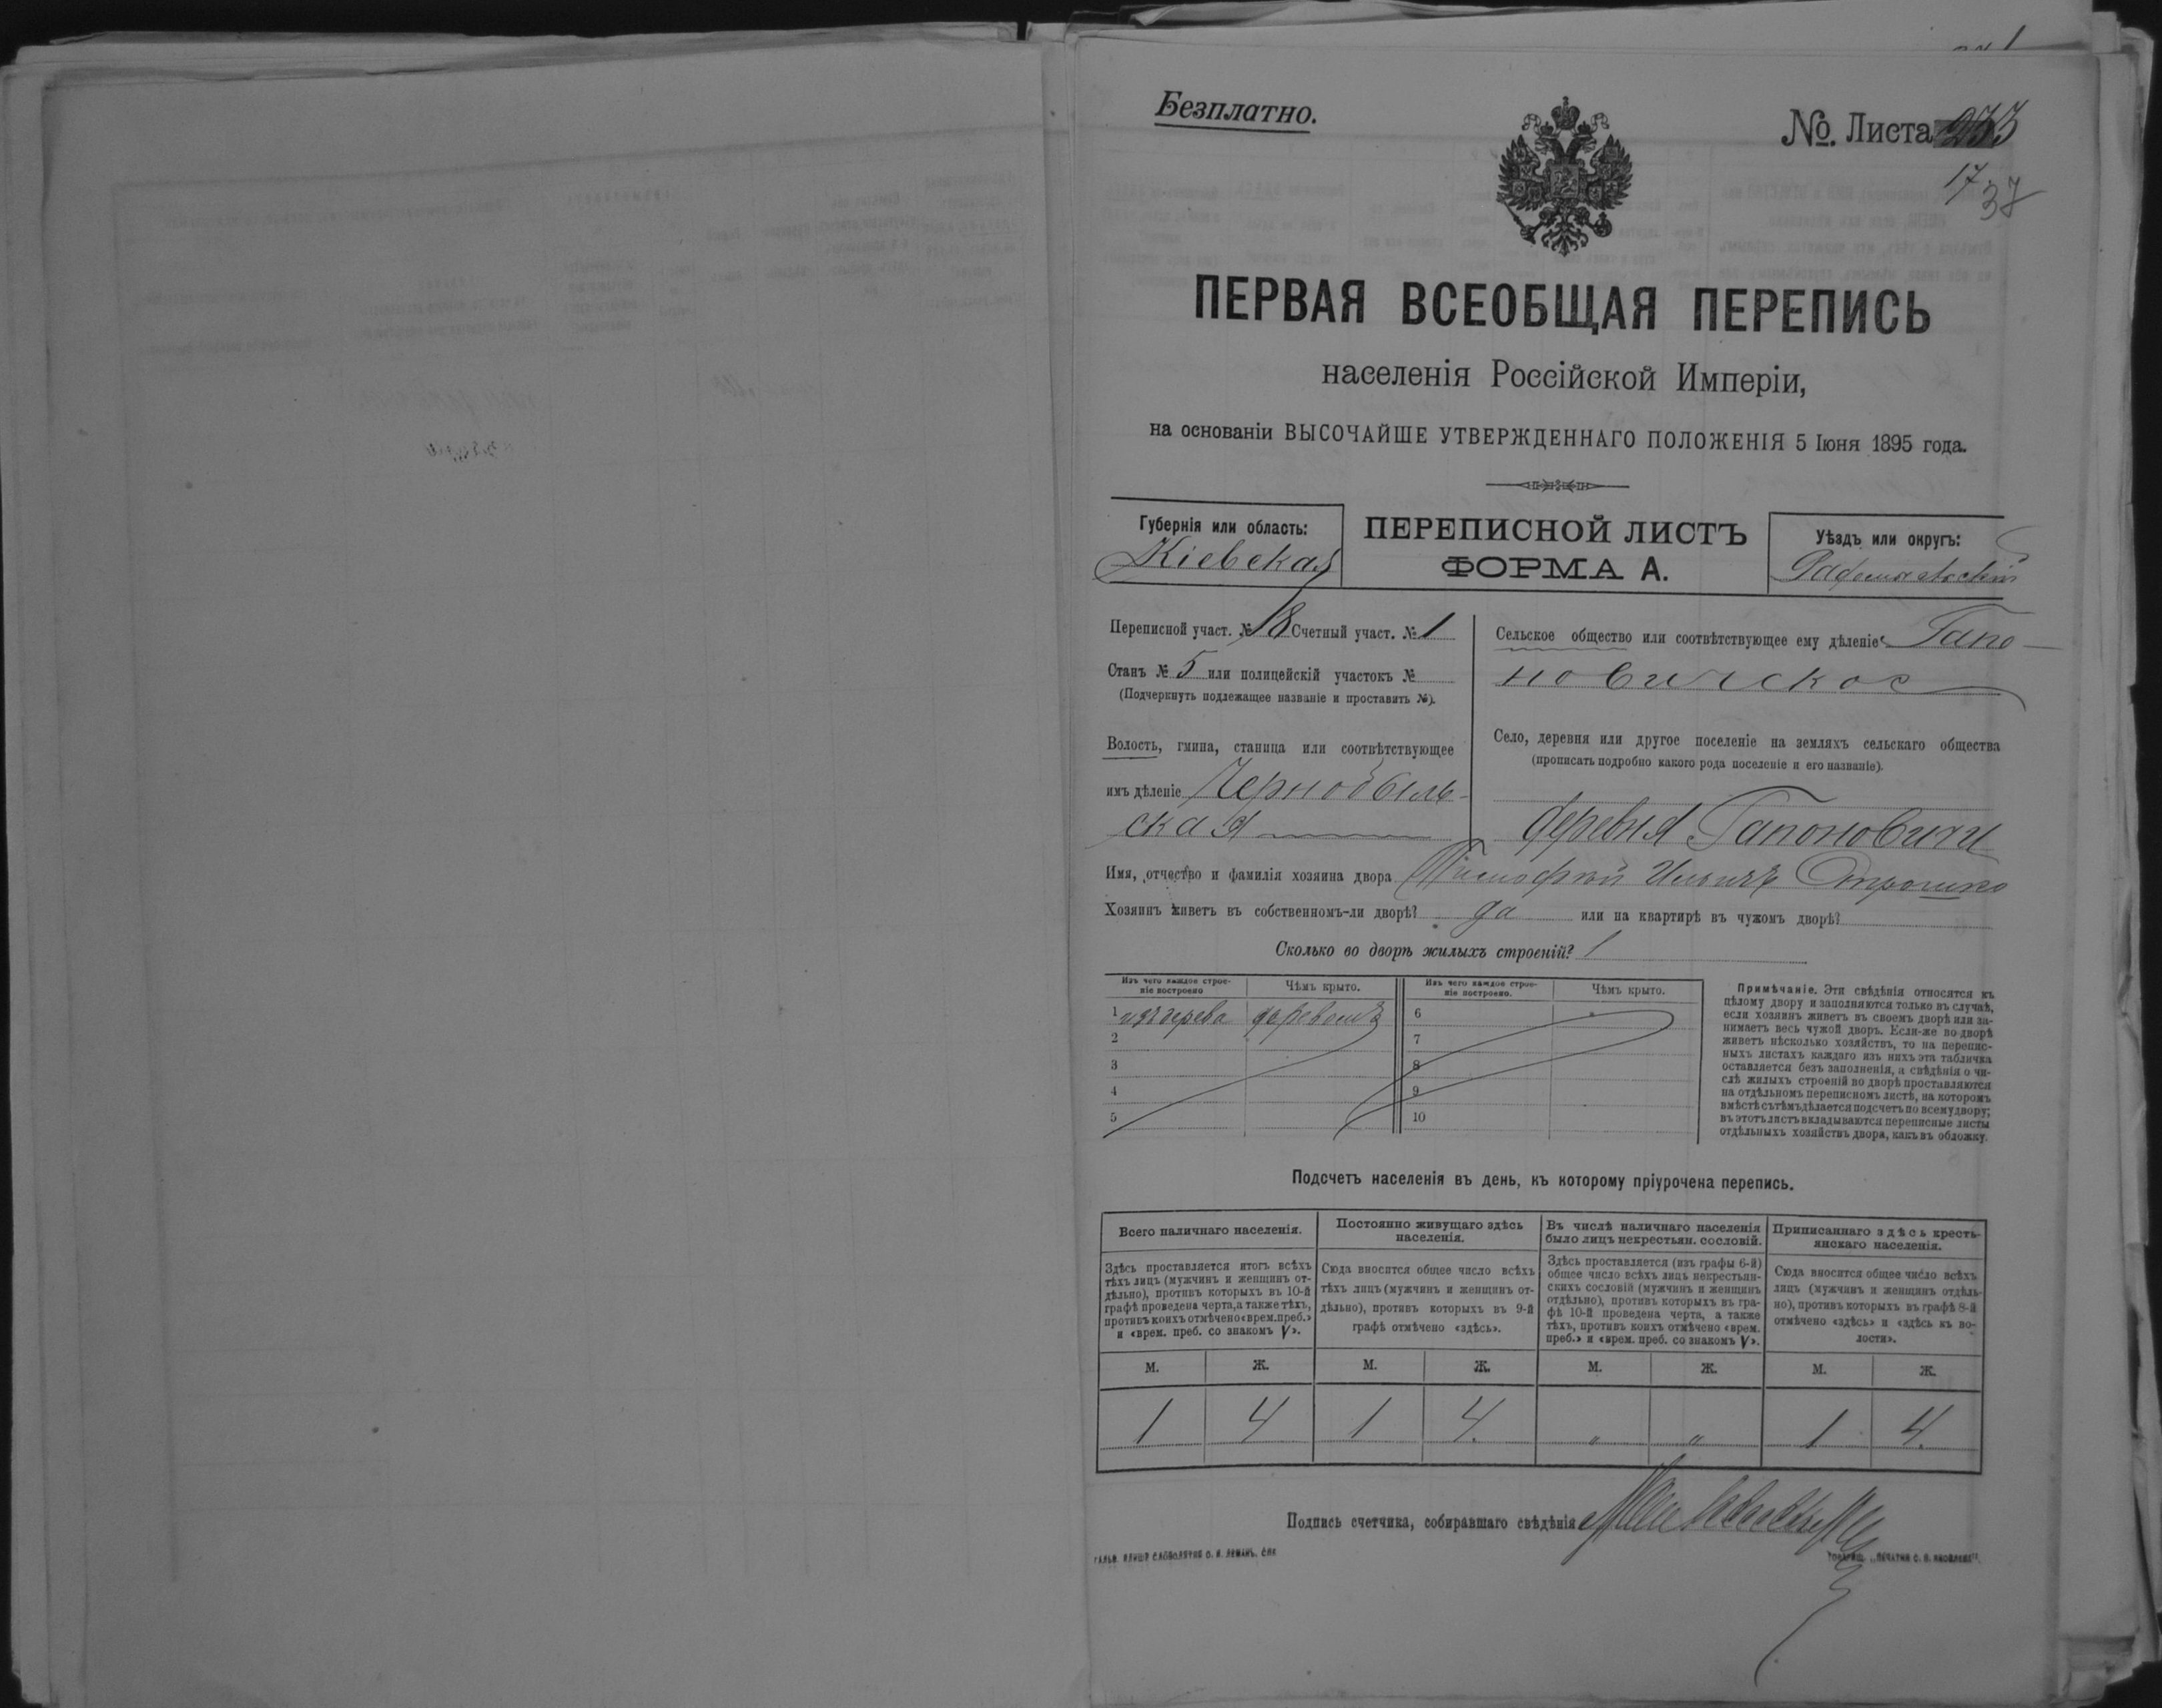 Безплатно.
№. Листа
17
37
ПЕРВАЯ ВСЕОБЩАЯ ПЕРЕПИСЬ
населенія Россійской Имперіи,
на основаніи ВЫСОЧАЙШЕ УТВЕРЖДЕННАГО ПОЛОЖЕНІЯ 5 Іюня 1895 года.
Губернія или область:
Кіевская
ПЕРЕПИСНОЙ ЛИСТЪ
ФОРМА А.
Уѣздъ или округъ:
Радомысльскій
Переписной участ. № 18 Счетный участ. № 1
Станъ № 5 или полицейскій участокъ №
(Подчеркнуть подлежащее названіе и проставить №).
Волость, гмина, станица или соотвѣтствующее
имъ дѣленіе Чернобыль-
ская
Сельское общество или соотвѣтствующее ему дѣленіе Гапо-
новичское
Село, деревня или другое поселеніе на земляхъ сельскаго общества
(прописать подробно какого рода поселеніе и его названіе).
деревня Гапоновичи
Имя, отчество и фамилія хозяина двора Тимофей Ильичъ
Хозяинъ живетъ въ собственномъ-ли дворѣ? да или на квартирѣ въ чужомъ дворѣ?
Сколько во дворѣ жилыхъ строеній? 1
Изъ чего каждое строе-
ніе построено
Чѣмъ крыто.
Изъ чего каждое строе-
ніе построено.
Чѣмъ крыто.
1 изъ дерева деревомъ
2
3
4
5
6
7
8
9
10
Примѣчаніе. Эти свѣдѣнія относятся къ
цѣлому двору и заполняются только въ случаѣ,
если хозяинъ живетъ въ своемъ дворѣ или за-
нимаетъ весь чужой дворъ. Если-же во дворѣ
живетъ нѣсколько хозяйствъ, то на перепис-
ныхъ листахъ каждаго изъ нихъ эта табличка
оставляется безъ заполненія, а свѣдѣнія о чи-
слѣ жилыхъ строеній во дворѣ проставляются
на отдѣльномъ переписномъ листѣ, на которомъ
вмѣстѣ съ тѣмъ дѣлается подсчетъ по всему двору;
въ этотъ листъ вкладываются переписные листы
отдѣльныхъ хозяйствъ двора, какъ въ обложку.
Подсчетъ населенія въ день, къ которому пріурочена перепись.
Всего наличнаго населенія.
Здѣсь проставляется итогъ всѣхъ
тѣхъ лицъ (мужчинъ и женщинъ от-
дѣльно), противъ которыхъ въ 10-й
графѣ проведена черта, а также тѣхъ,
противъ коихъ отмѣчено «врем. преб.»
и «врем. преб. со знакомъ V».
Постоянно живущаго здѣсь
населенія.
Сюда вносится общее число всѣхъ
тѣхъ лицъ (мужчинъ и женщинъ от-
дѣльно), противъ которыхъ въ 9-й
графѣ отмѣчено «здѣсь».
Въ числѣ наличнаго населенія
было лицъ некрестьян. сословій.
Здѣсь проставляется (изъ графы 6-й)
общее число всѣхъ лицъ некрестьян-
скихъ сословій (мужчинъ и женщинъ
отдѣльно), противъ которыхъ въ гра-
фѣ 10-й проведена черта, а также
тѣхъ, противъ коихъ отмѣчено «врем.
преб.» и «врем. преб. со знакомъ V».
Приписаннаго здѣсь кресть-
янскаго населенія.
Сюда вносится общее число всѣхъ
лицъ (мужчинъ и женщинъ отдѣль-
но), противъ которыхъ въ графѣ 8-й
отмѣчено «здѣсь» и «здѣсь въ во-
лости».
М. Ж. М. Ж. М. Ж. М. Ж.
1 4 1 4. " " 1 4.
Подпись счетчика, собиравшаго свѣдѣнія